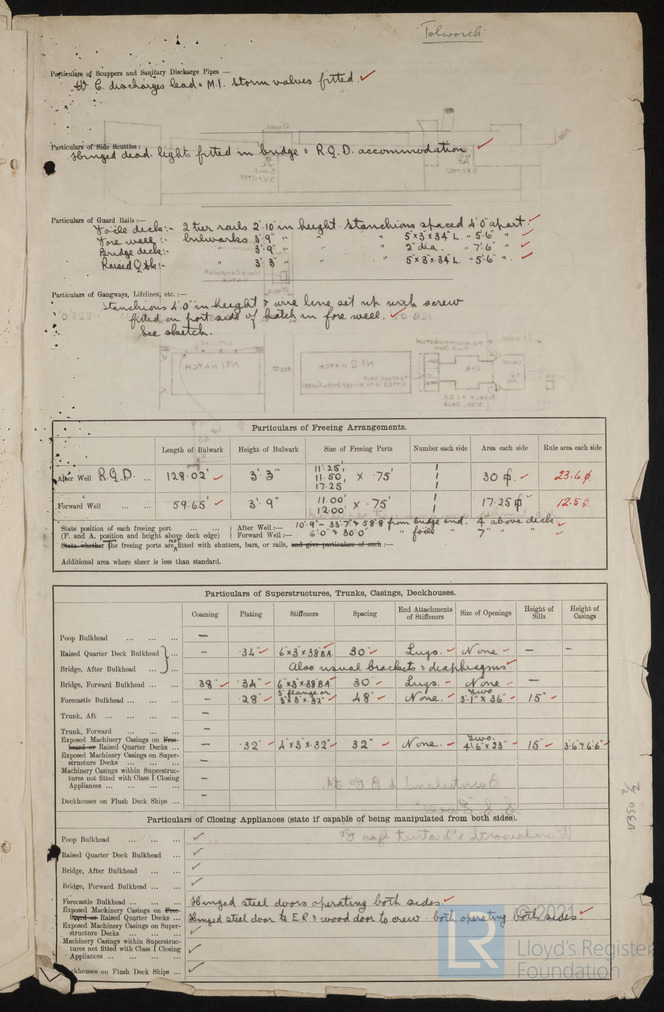 Tolworth
Particulars of Scuppers and Sanitary Discharge Pipes —
W.C. discharges lead & M.I. storm valves fitted ✓
Particulars of Side Scuttles:—
Hinged dead lights fitted in bridge & R.Q.D. accommodation ✓
Particulars of Guard Rails:—
Fo'cle deck:- 2 tier rails 2'·10" in height stanchions spaced 4'0" apart. ✓
Fore well:- bulwarks 3'·9" " " 5"×3"×.34" L. " 5'·6" " ✓
Bridge deck:- " 3'·9" " " 2" dia. " 7'·6" ✓
Raised Q. dk:- " 3'·3" " " 5"×3"×.34" L. " 5'·6" " ✓
Particulars of Gangways, Lifelines, etc.:—
Stanchions 4'0" in height & wire line set up with screw
fitted on port side of hatch in fore well. ✓
See sketch.
Particulars of Freeing Arrangements.
Length of Bulwark Height of Bulwark Size of Freeing Ports Number each side Area each side Rule area each side
11'·25'
After Well R.Q.D. ... 128·02' ✓ 3'·3" 11·50, × ·75' 1 30 ✓ 23·6
17·25 1
Forward Well ... 59·65' ✓ 3'·9" 11·00' × ·75' 1 17·25 ✓ 12·5
12·00' 1
State position of each freeing port ... ... After Well:— 10'·9" – 33'·7" & 58'8 from bridge end. 4" above deck ✓
(F. and A. position and height above deck edge) Forward Well:— 6'·0" & 30'·0" " fo'cle " 7" " " ✓
State whether The freeing ports are not fitted with shutters, bars, or rails, and give particulars of such :—
Additional area where sheer is less than standard.
Particulars of Superstructures, Trunks, Casings, Deckhouses.
Coaming Plating Stiffeners Spacing End Attachments of Stiffeners Size of Openings Height of Sills Height of Casings
Poop Bulkhead ... ... ... —
Raised Quarter Deck Bulkhead ... — ·34" ✓ 6"×3"×·38 B.A. 30" ✓ Lugs. ✓ None ✓ — —
Bridge, After Bulkhead ... ... Also usual brackets & diaphragms ✓
Bridge, Forward Bulkhead ... ... ·38" ✓ ·34" ✓ 6"×3"×·38 B.A. 30 ✓ Lugs. ✓ None ✓ —
Forecastle Bulkhead ... ... ... — ·28" ✓ 3" flange or 3"×3"×·32" ✓ 48" ✓ None. ✓ Two 3'·1" × 36" ✓ 15" ✓
Trunk, Aft ... ... ... —
Trunk, Forward ... ... ... —
Exposed Machinery Casings on Freeboard or Raised Quarter Decks ... — ·32" ✓ 4"×3"×·32" ✓ 32" ✓ None. ✓ Two. 4'·6" × 23" ✓ 15" ✓ 3'6" & 6'6" ✓
Exposed Machinery Casings on Superstructure Decks ... ... ... —
Machinery Casings within Superstructures not fitted with Class I Closing Appliances ... ... ... —
Deckhouses on Flush Deck Ships ... —
Particulars of Closing Appliances (state if capable of being manipulated from both sides).
Poop Bulkhead ... ... ... ✓
Raised Quarter Deck Bulkhead ... ✓
Bridge, After Bulkhead ... ... ✓
Bridge, Forward Bulkhead ... ... ✓
Forecastle Bulkhead ... ... ... Hinged steel doors operating both sides. ✓
Exposed Machinery Casings on Freeboard or Raised Quarter Decks ... Hinged steel door to E.R. & wood door to crew - both operating both sides. ✓
Exposed Machinery Casings on Superstructure Decks ... ... ... ✓
Machinery Casings within Superstructures not fitted with Class I Closing Appliances ... ... ... ✓
Deckhouses on Flush Deck Ships ... ✓
© 2021
LR
Lloyd's Register
Foundation